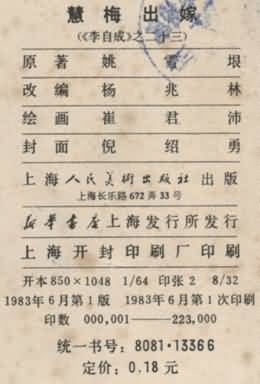 慧梅出嫁
(《李自成》之二十三)
原著 姚雪垠
改编 杨兆林
绘画 崔君沛
封面 倪绍勇
上海人民美术出版社出版
上海长乐路672弄33号
新华书店上海发行所发行
上海开封印刷厂印刷
开本850×1048 1/64 印张2 8/32
1983年6月第1版 1983年6月第1次印刷
印数 000,001——223,000
统一书号：8081·13366
定价：0.18元